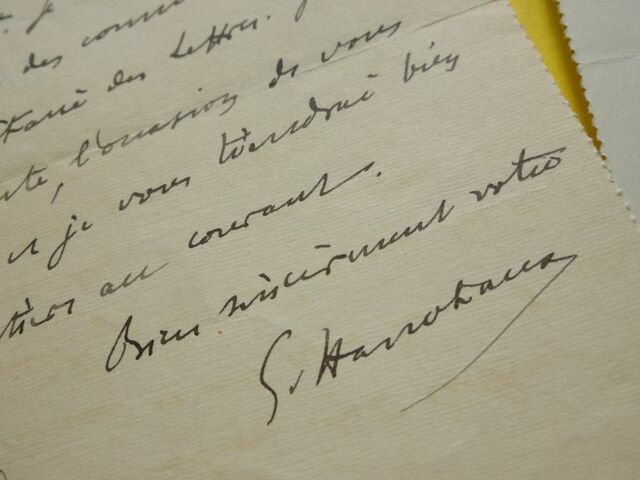 je
des
des Lettres.
, l'occasion de vous
et je vous tiendrai bien
au courant.
Bien sincèrement votre
G. Hanotaux